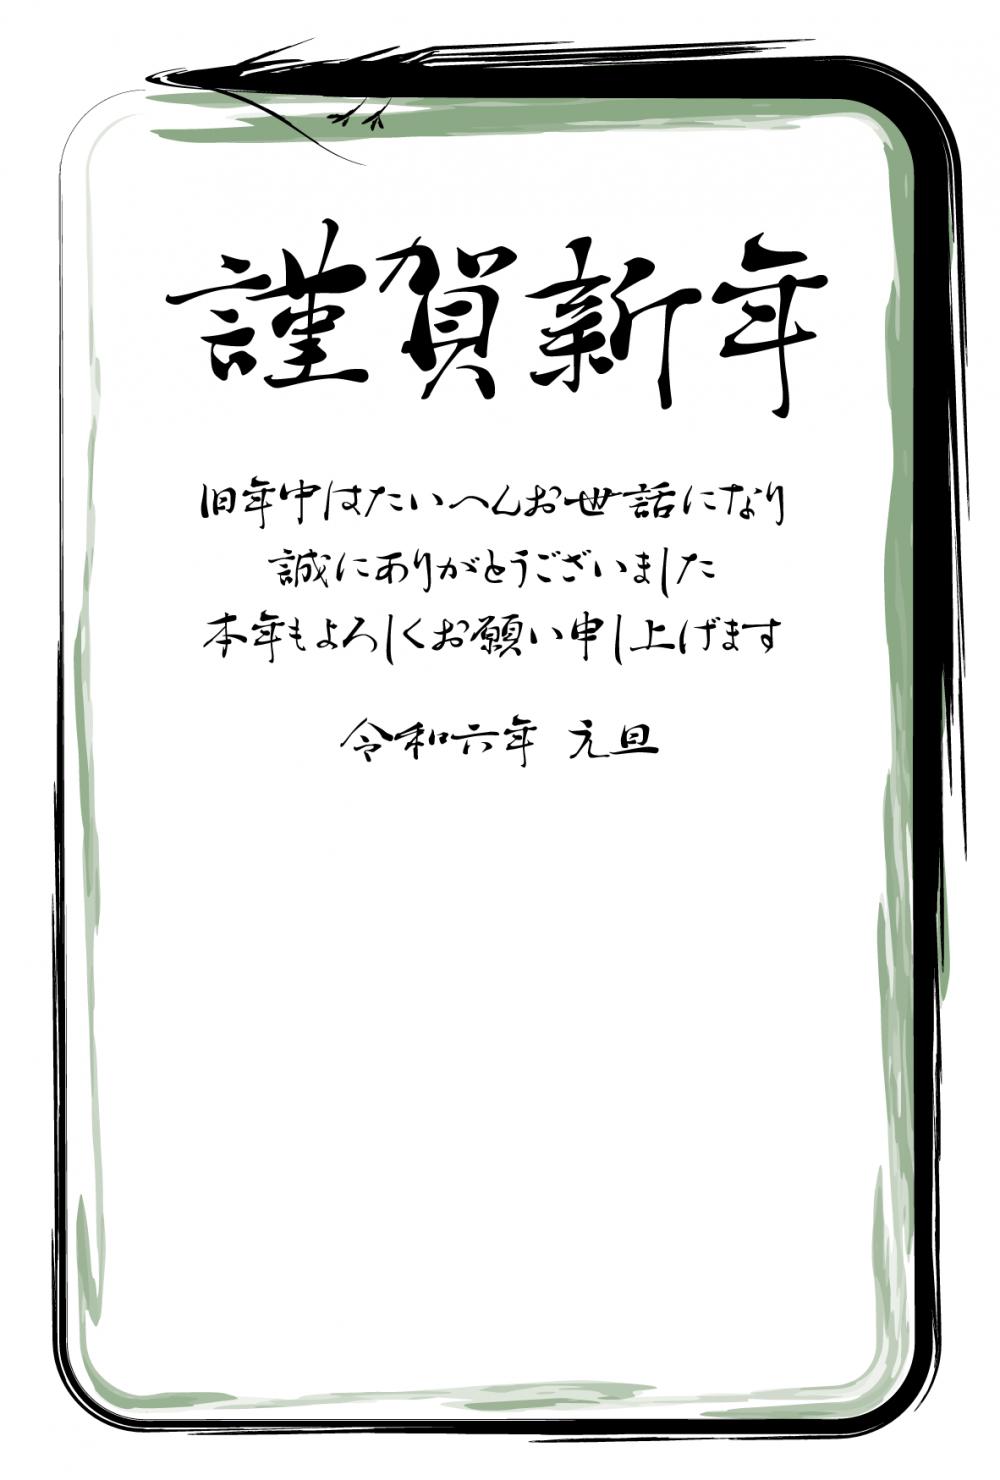 謹賀新年
旧年中はたいへんお世話になり
誠にありがとうございました
本年もよろしくお願い申し上げます
令和六年 元旦